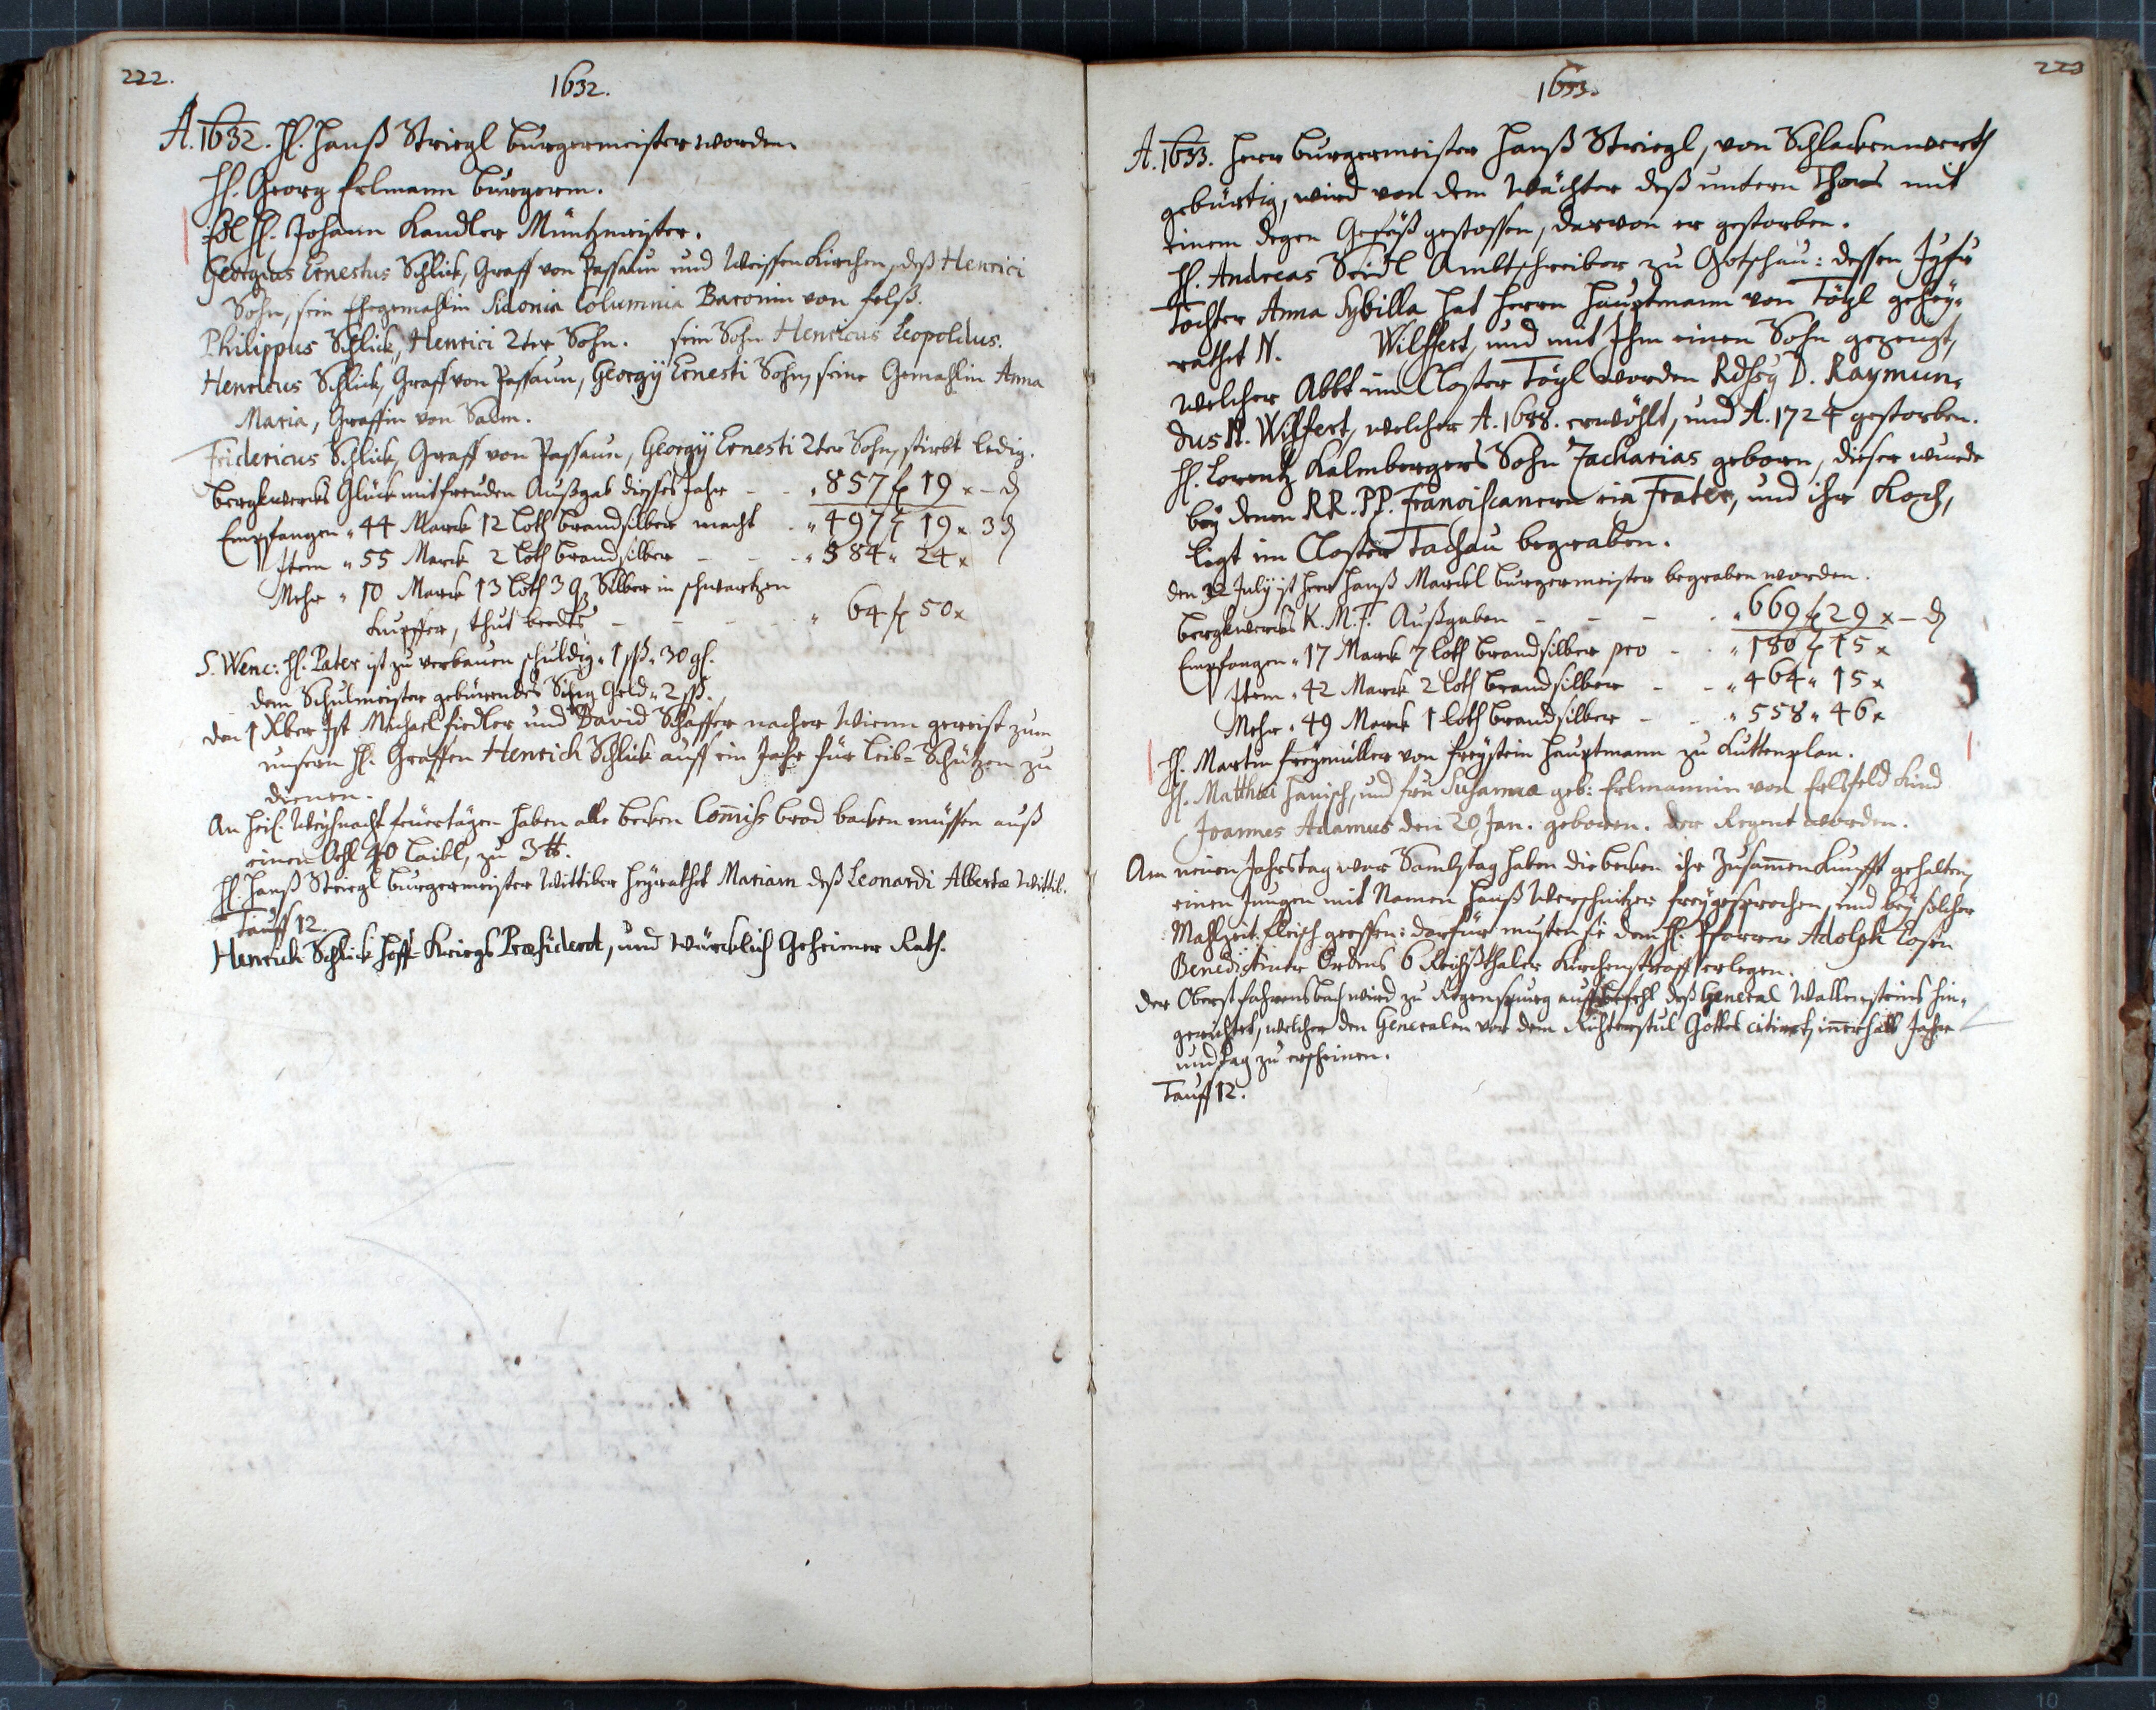 222.
1632.
A. 1632. H. Hanß Striegl Burgermeister worden.
H. Georg Erlmann Burgerm.
H. Johann Kandler Müntzmeister.
Georgius Ernestus Schlick, Graff von Passaun und Weissenkirchen, deß Henrici
Sohn, sein Ehegemahlin Sidonia Columnia Baronin von Felß.
Philippus Schlick, Henrici 2ter Sohn. sein Sohn Henricus Leopoldus.
Henricus Schlick, Graff von Passaun, Georgÿ Ernesti Sohn, seine Gemahlin Anna
Maria, Graffin von Salm.
Fridericus Schlick, Graff von Passaun, Georgÿ Ernesti 2ter Sohn, stirbt ledig.
Bergkwercks Glück mit Freuden Außgab dieses Jahr - - " 857 f 19 x - ₰
Empfangen " 44 Marck 12 loth brandsilber macht - " 497 f 19 x 3 ₰
Item " 55 Marck 2 loth brandsilber - - - " 584 " 24 x
Mehr " 10 Marck 13 loth 3 q. Silber in schwartzen
Kupffer, thut - - - - " 64 f 50 x
S. Wenc: H. Pater ist zu verbauen schuldig " 1 sß " 30 gl.
dem Schulmeister gebürendes Geld " 2 sß.
den 1 Xber Ist Michael Fiedler und David Schaffer nacher Wienn gereist zum
unsern H. Graffen Henrich Schlick auff ein Jahr für Leib-Schützen zu
dienen.
An heil. Weÿhnacht feüertägen haben alle becken Com̄iß brod backen müssen auß
einen 40 laibl, zu 3 ℔.
H. Hanß Striegl Burgermeister Wittiber heÿrathet Mariam deß Leonardi Alberta Wittib.
Tauff 12.
Henrich Schlick Hoff-Kriegs Præsident, und würcklich Geheimer Rath.
223
1633.
A. 1633. Herr Burgermeister Hanß Striegl, von Schlackenwerth
gebürtig, wird von dem Wächter deß untern Thors mit
einem degen Gefäß gestossen, darvon er gestorben.
H. Andreas Seidl Ambtschreiber zu Gotschau: dessen
Tochter Anna Sybilla hat Herrn Hauptmann von Töpl geheÿ-
rathet N. Wilffert, und mit Ihm einen Sohn gezeugt,
welcher Abbt im Closter Töpl worden D. Raymun-
dus Wilfert, welcher A. 1688. erwöhlt, und A. 1724 gestorben.
H. Lorentz Kalmbergers Sohn Zacharias geborn, dieser wurde
beÿ denen RR. PP. Franciscanern ein Frater, und ihr Koch,
ligt im Closter Tachau begraben.
den July ist Herr Hanß Marckl Burgermeister begraben worden.
Bergkwercks K. M. F. Außgaben - - - - " 669 f 29 x - ₰
Empfangen " 17 Marck 7 loth brandsilber pro - - " 180 f 15 x
Item " 42 Marck 2 loth brandsilber - - " 464 " 15 x
Mehr " 49 Marck 1 loth brandsilber - - " 558 " 46 x
H. Martin Freÿmüller von Freÿstein Hauptmann zu Kuttenplan.
H. Matthæi Hanisch, und frau Susanna geb: Erlmannin von Erlsfeld Kind
Joannes Adamus den 20 Jan. geboren. der Regent worden.
Am neuen Jahrstag war Sambstag haben die becken ihr Zusam̄enkunfft gehalten,
einen Jungen mit Namen Hanß Werschnitzer freÿgesprochen, und beÿ solcher
Mahlzeit fleisch geessen: darfür musten sie dem H. Pfarrer Adolph Losen
Benedictiner Ordens 6 Reichßthaler Kirchenstraff erlegen.
Der Oberst Fahrensbach wird zu Regenspurg auff befehl deß General Wallensteins hin-
gerichtet, welcher den Generalen vor dem Richterstul Gottes citiret, in̄erhalb Jahr
und tag zu erscheinen.
Tauff 12.